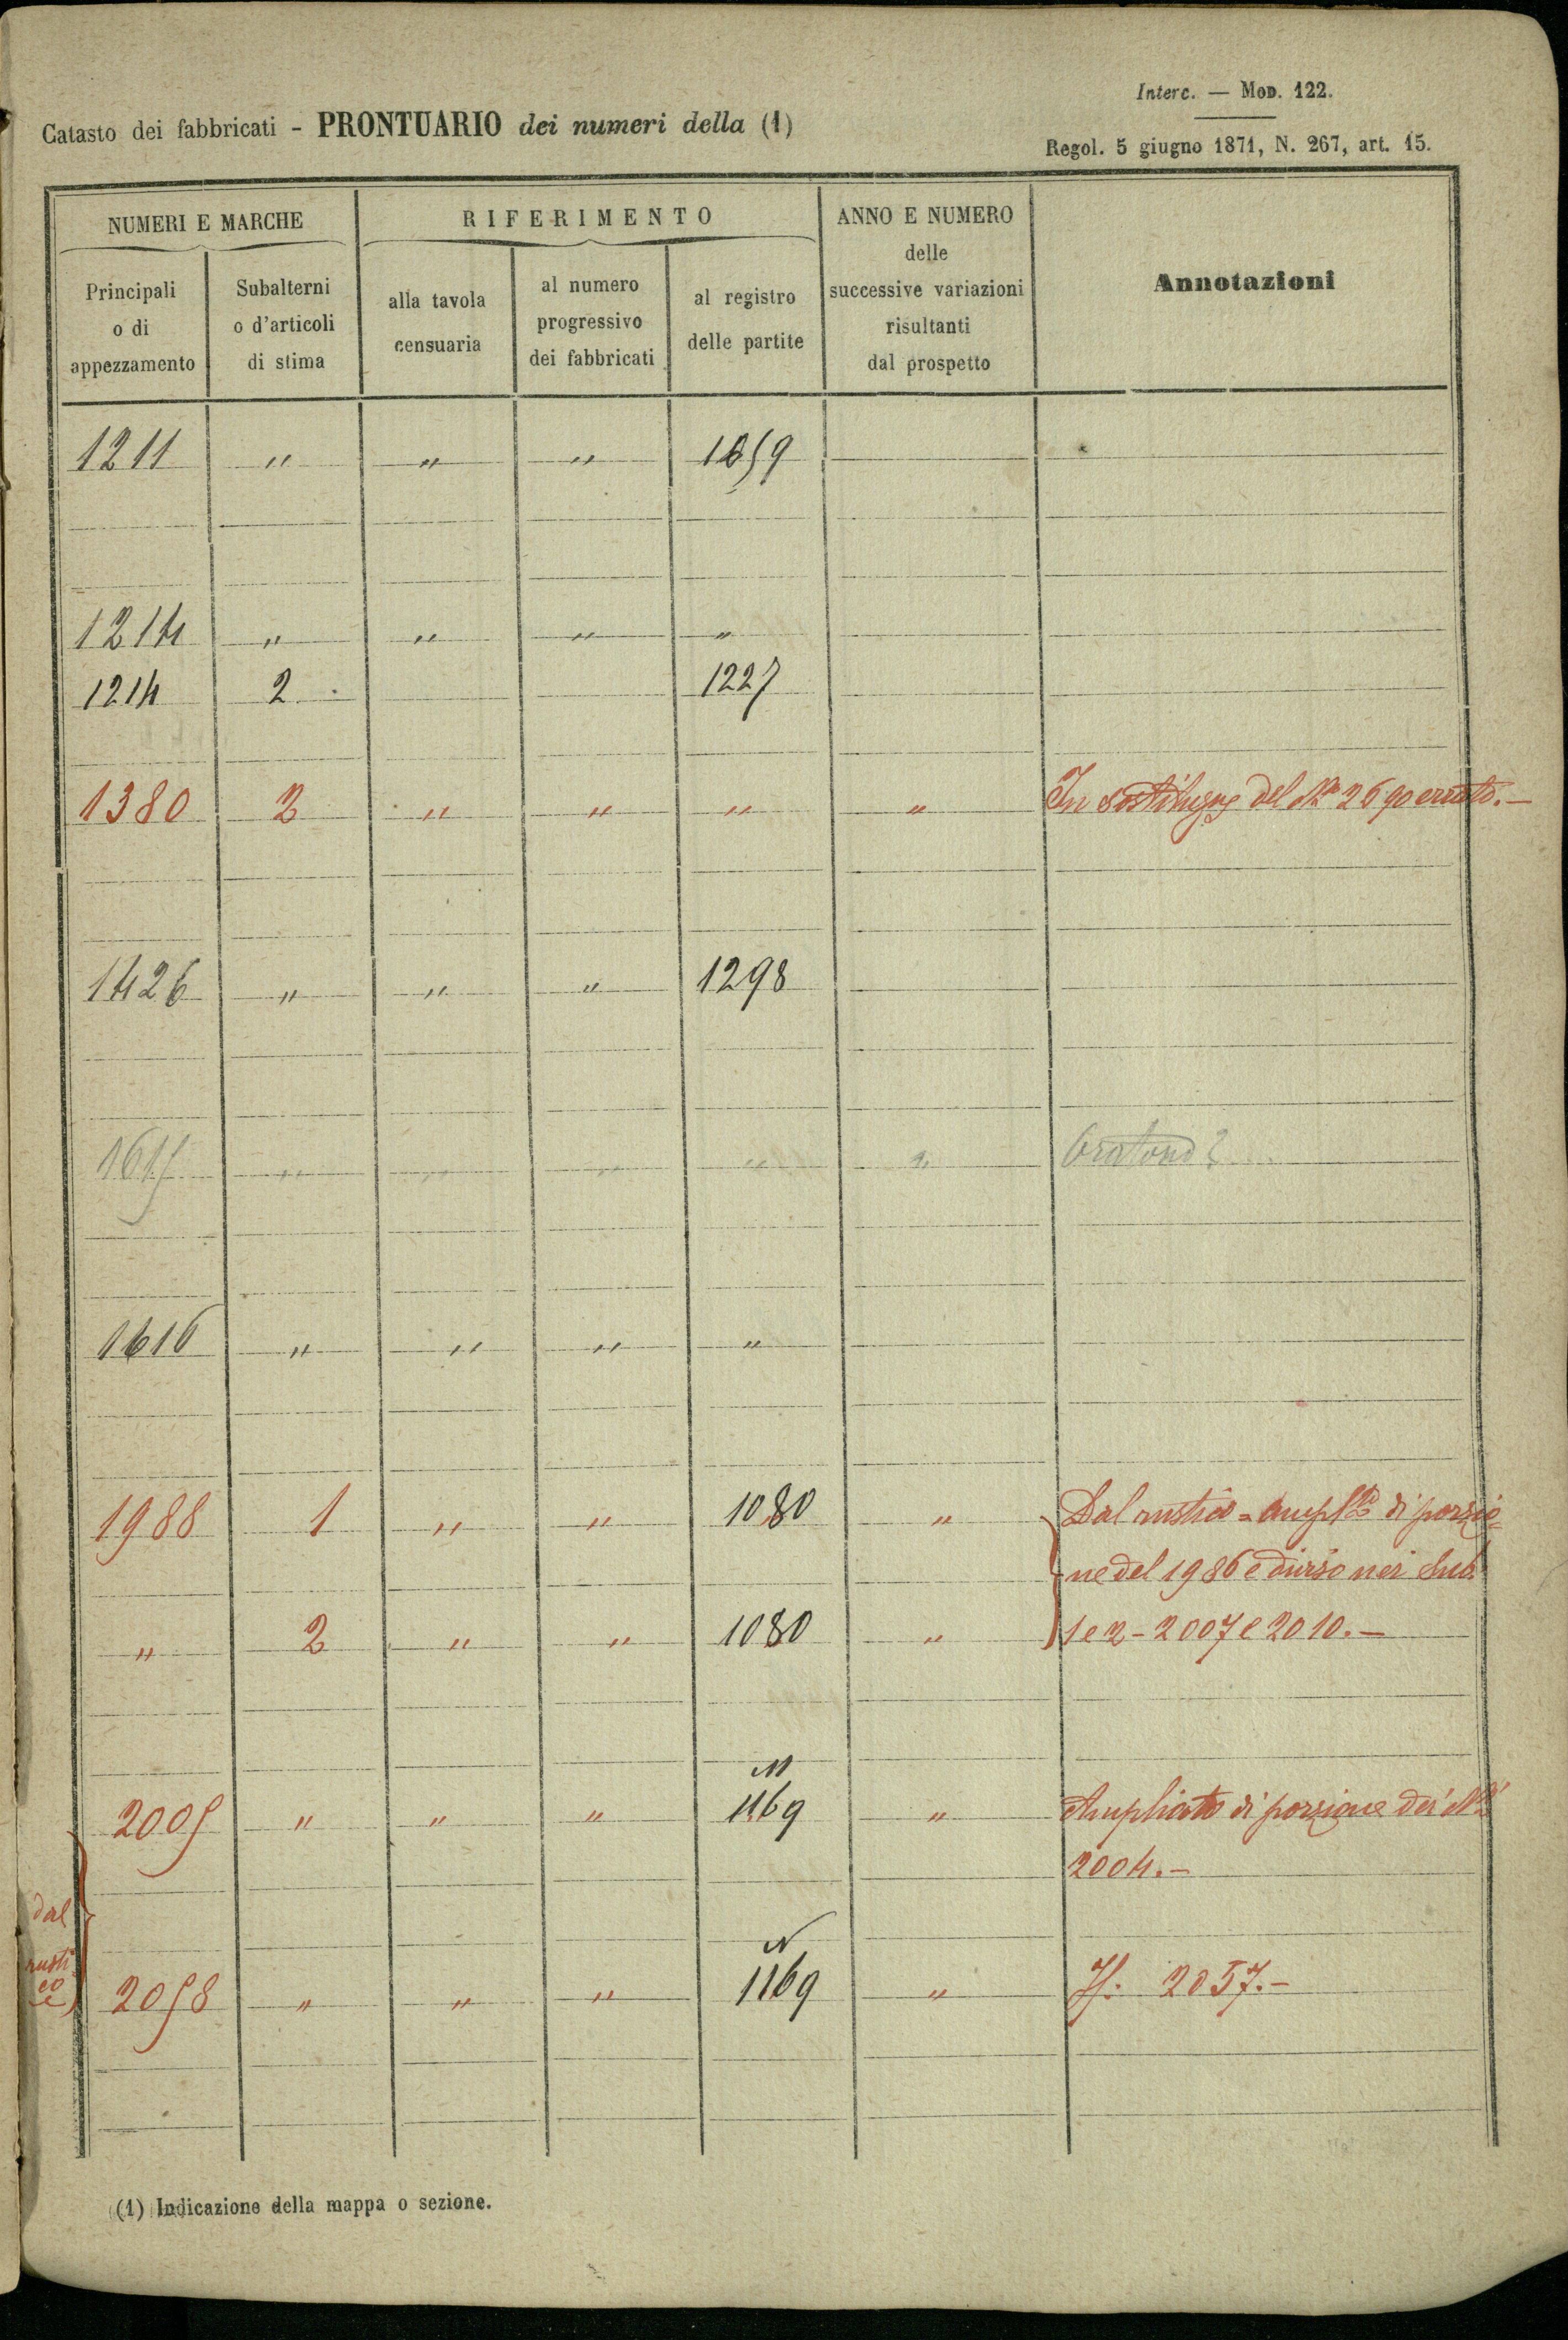 Interc. — Mod. 122.
Catasto dei fabbricati - PRONTUARIO dei numeri della (1)
Regol. 5 giugno 1871, N. 267, art. 15.
NUMERI E MARCHE
RIFERIMENTO
ANNO E NUMERO
delle
successive variazioni
risultanti
dal prospetto
Annotazioni
Principali
o di
appezzamento
Subalterni
o d'articoli
di stima
alla tavola
censuaria
al numero
progressivo
dei fabbricati
al registro
delle partite
1211 " " " 1659
1214 " " " "
1214 2 1227
1380 2 " " " " In sostituzne del No 2690 errato. —
1426 " " " 1298
1615 " " " " "
1616 " " " "
1988 1 " " 1080 " Dal rustico = Ampl.to di porzio=
ne del 1986 e diviso nei Sub.
" 2 " " 1080 " 1 e 2 - 2007 e 2010. —
2005 " " " 1169 " Ampliato di porzione dei Ni
2004. —
dal
rusti
co
2058 " " " N 1169 " 2057. —
(1) Indicazione della mappa o sezione.